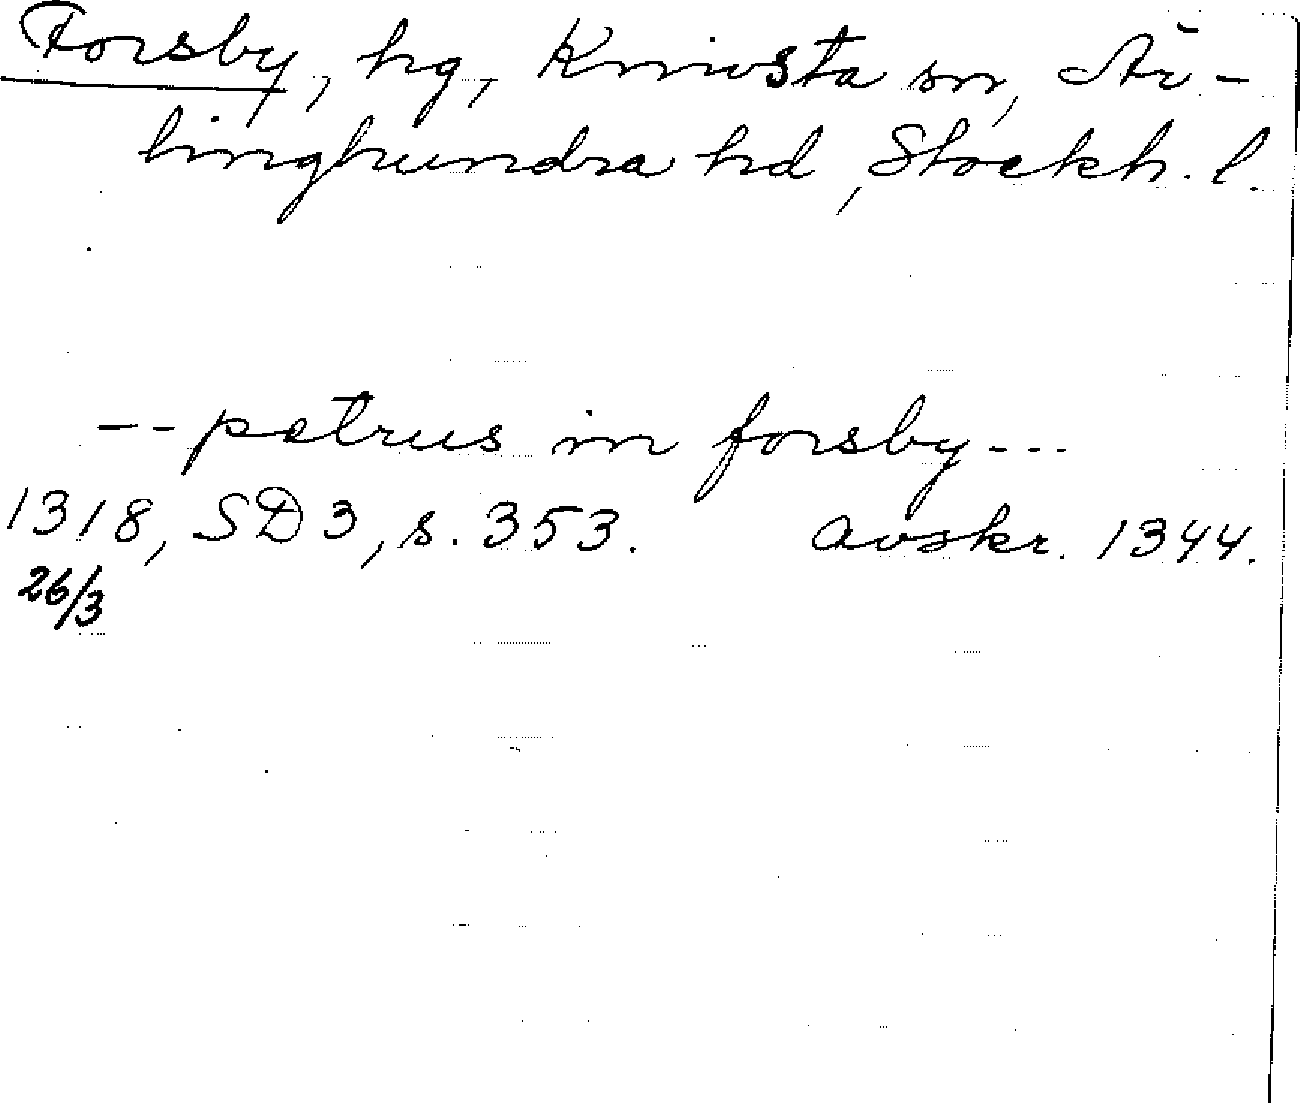 Forsby, hg, Knivsta sn, Är-
linghundra hd, Stockh. l.
-- petrus in forsby ---
1318, SD 3, s. 353. Avskr. 1344.
26/3